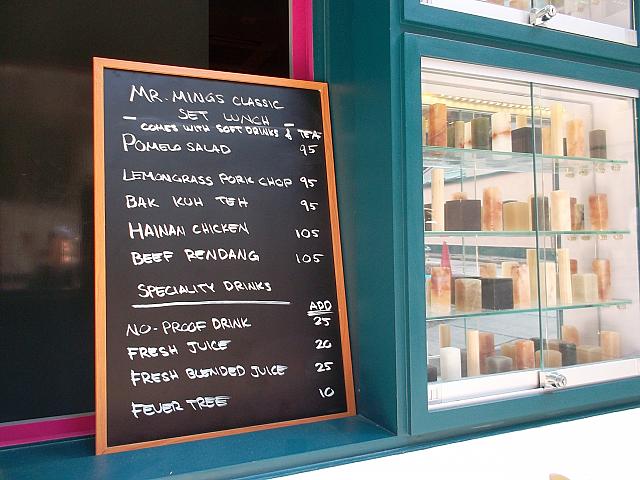 MR. MINGS CLASSIC
SET LUNCH
- COMES WITH SOFT DRINKS & TEA -
POMELO SALAD 95
LEMONGRASS PORK CHOP 95
BAK KUH TEH 95
HAINAN CHICKEN 105
BEEF RENDANG 105
SPECIALITY DRINKS
ADD
NO-PROOF DRINK 25
FRESH JUICE 20
FRESH BLENDED JUICE 25
FEVER TREE 10